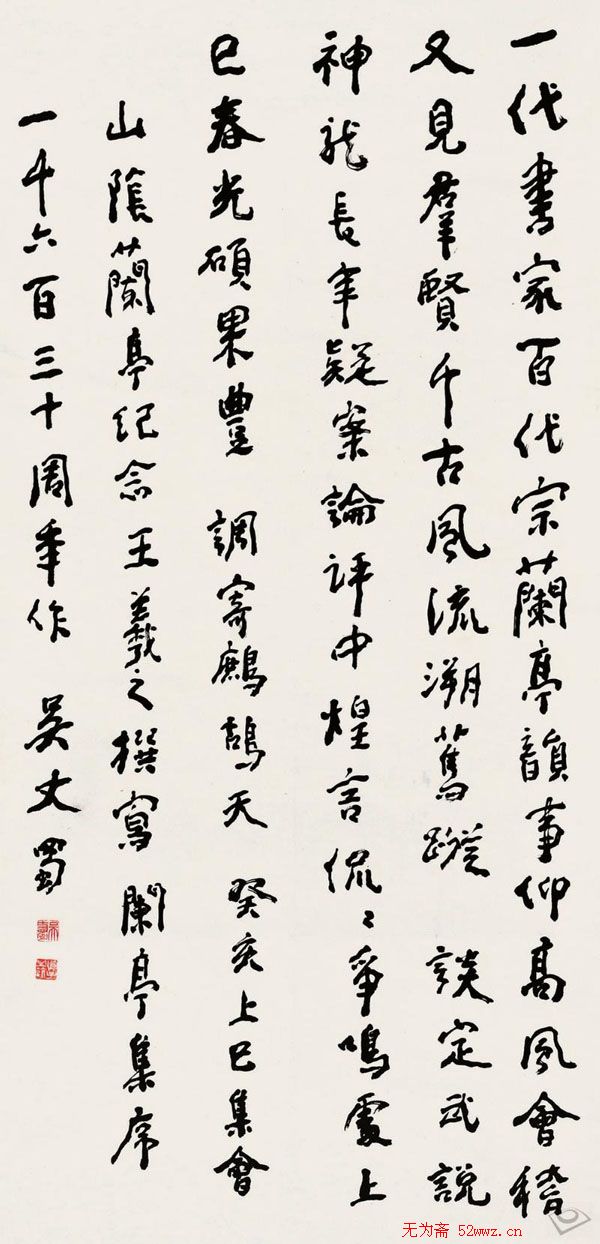 一代書家百代宗蘭亭韻事仰高風會稽
又見羣賢千古風流溯舊蹤 談定武說
神龍長年疑案論評中煌言侃〻爭鳴處上
巳春光碩果豐 調寄鷓鴣天 癸亥上巳集會
山陰蘭亭紀念王羲之撰寫闌亭集序
一千六百三十周年作 吳丈蜀
无为斋 52wwz.cn